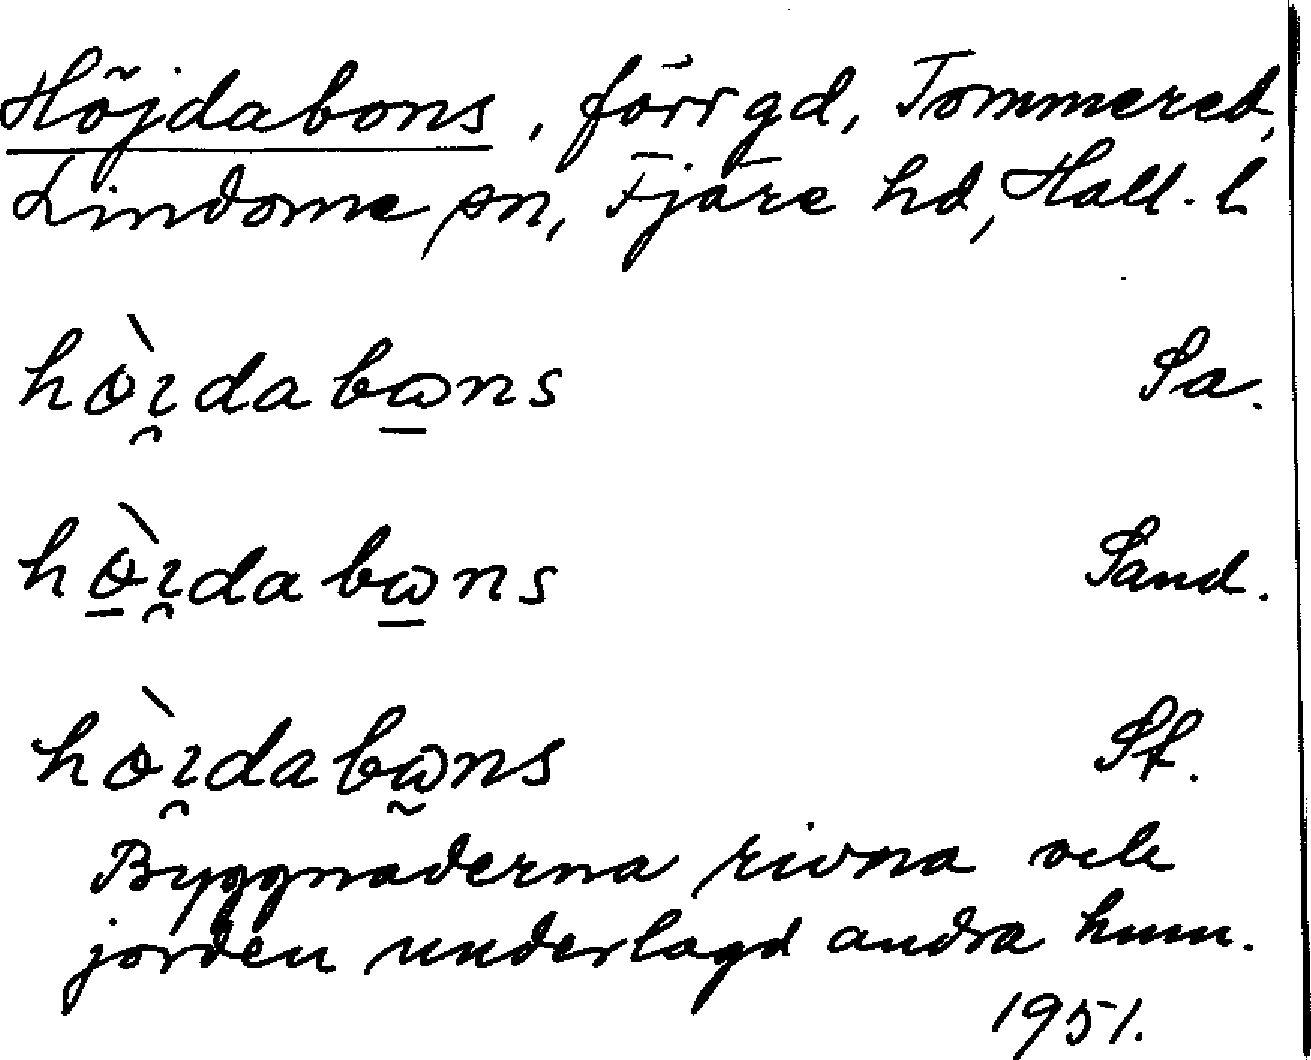 Höjdabons, förr gd, Tommered,
Lindome sn, Fjäre hd, Hall. l
hɵ̀ı̯dabⱺ̱ns Sa.
hɵ̱̀ı̯dabⱺ̱ns Sand.
hɵ̀ı̯dabⱺ̰ns St.
Byggnaderna rivna och
jorden underlagd andra hmn.
1951.